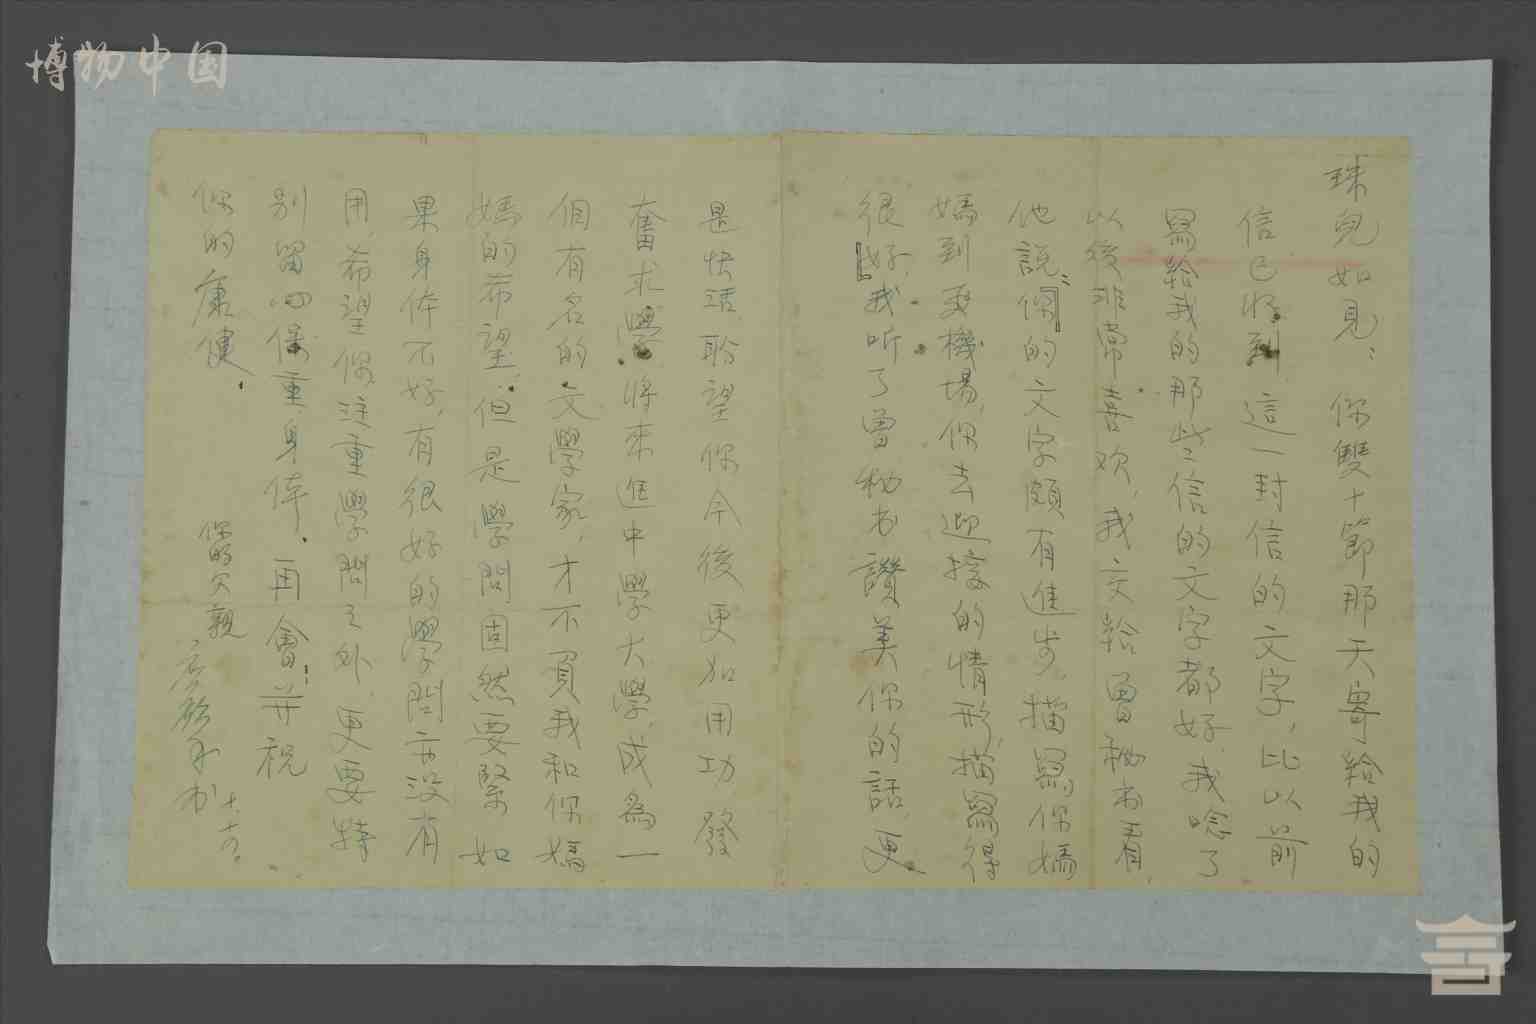 博物中国
珠兒如見：你雙十節那天寄給我的
信已收到 這一封信的文字，比以前
寫給我的那些信的文字都好，我唸了
以後非常喜欢，我交給曾秘书看，
他說：你的文字頗有進步，描寫你媽
媽到飛機場，你去迎接的情形，描寫得
很好，我听了曾秘书讚美你的話，更
是快活，盼望你今後更加用功 發
奮求學，將來進中學大學，成為一
個有名的文學家，才不負我和你媽
媽的希望，但是學問固然要緊 如
果身体不好，有很好的學問亦没有
用，希望你注重學問之外，更要特
別留心保重身体．再會！並祝
你的康健．
你的父親
手书
十.六.